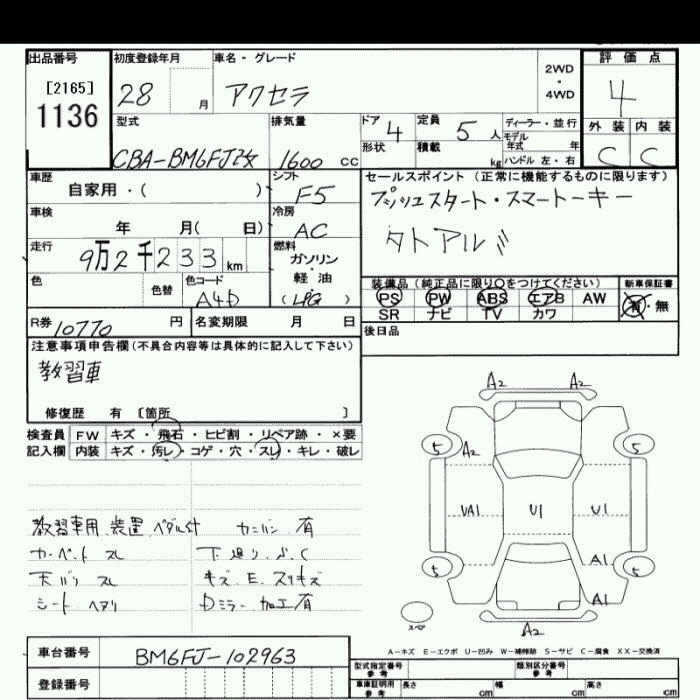 出品番号 初度登録年月 車名・グレード 評価点
[2165] 28 月 アクセラ 2WD・4WD 4
1136
型式 排気量 ドア 4 定員 5 人 ディーラー・並行 外装 内装
CBA-BM6FJ改 1600 cc 形状 積載 kg モデル年式 年 C C
ハンドル 左・右
車歴 シフト セールスポイント (正常に機能するものに限ります)
自家用・( ) F5 プッシュスタート・スマートーキー
車検 冷房
年 月( 日) AC
走行 9万2千233km 燃料
ガソリン・軽油
(LPG)
色 色替 色コード A4D
装備品(純正品に限り○をつけてください) 新車保証書
PS PW ABS エアB AW 有・無
SR ナビ TV カワ
R券 10770 円 名変期限 月 日 後日品
注意事項申告欄(不具合内容等は具体的に記入して下さい)
教習車
修復歴 有 〔箇所 〕
検査員 FW キズ・飛石・ヒビ割・リペア跡・×要
記入欄 内装 キズ・汚レ・コゲ・穴・スレ・キレ・破レ
教習車用 装置 ペダル付
カーペット スレ
天バリ スレ
シート ヘタリ
キズ、E、スリキズ
Dミラー 加工有
A2 A2
5 A2 5
UA1 U1 U1
A1
5 5
A1
スペア A2
A-キズ E-エクボ U-凹み W-補修跡 S-サビ C-腐食 XX-交換済
車台番号 BM6FJ-102963
型式指定番号 参考 類別区分番号 参考
登録番号
車庫証明用 参考 長さ cm 幅 cm 高さ cm